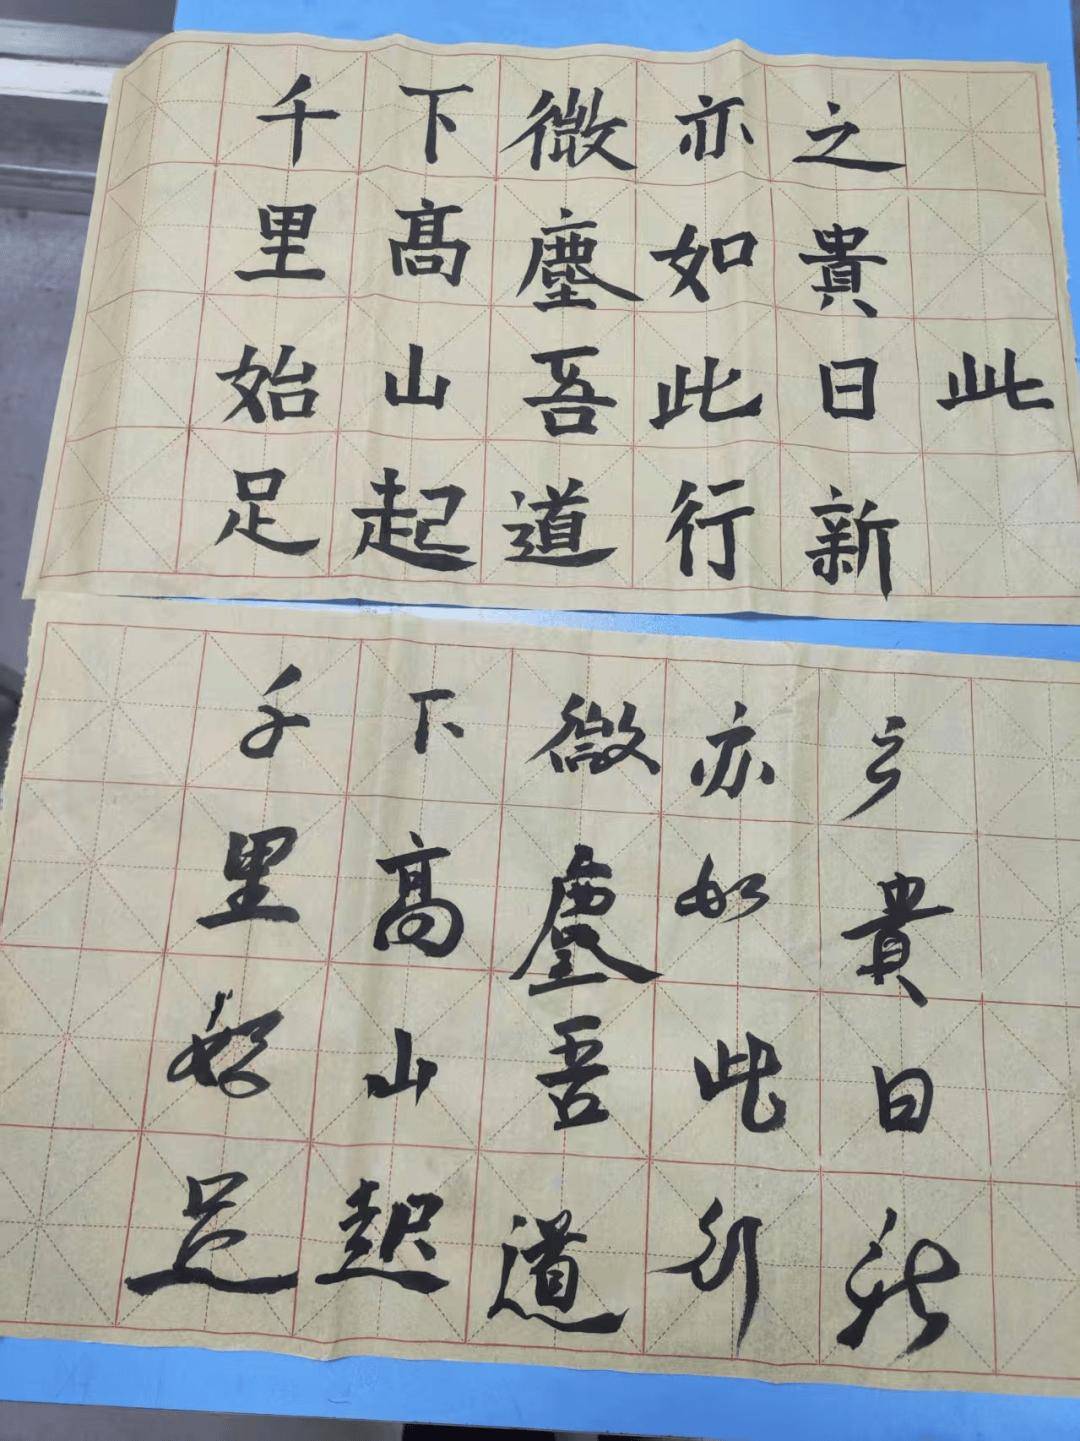 千里始足
下高山起
微塵吾道
亦如此行
之貴日新
此
千里始足
下高山起
微塵吾道
亦如此行
之貴日新